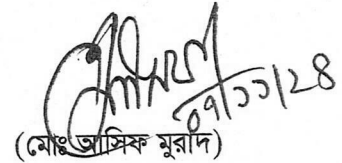 ০৭/১১/২৪
(মোঃ আসিফ মুরাদ)